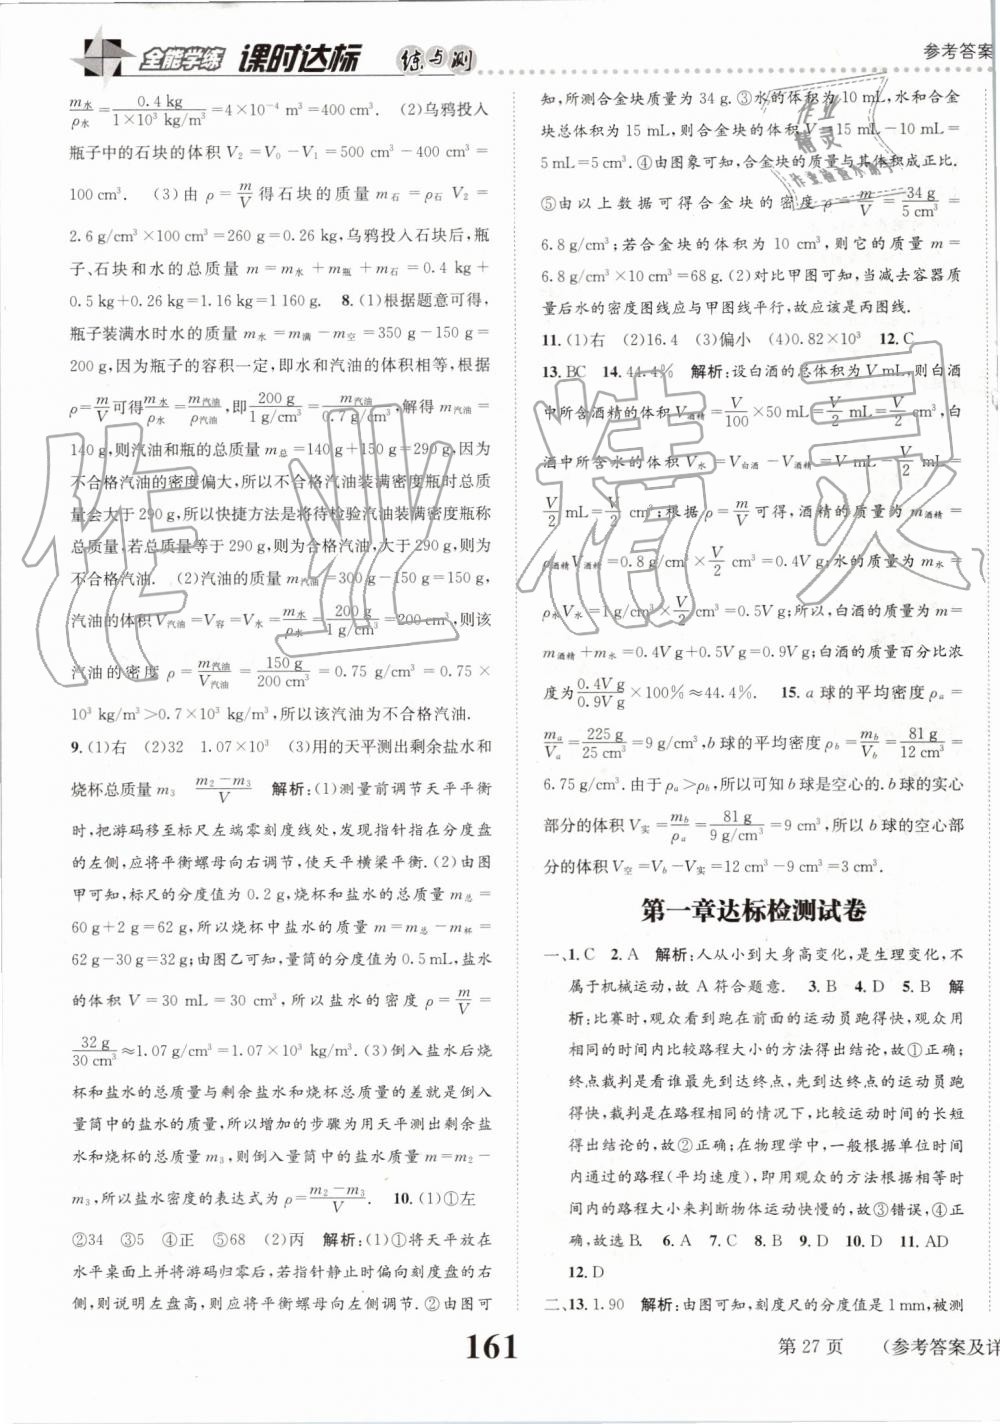 全能学练 课时达标 练与测
参考答案
m水/ρ水=0.4 kg/1×10³ kg/m³=4×10⁻⁴ m³=400 cm³. (2)乌鸦投入
瓶子中的石块的体积 V₂=V₀-V₁=500 cm³-400 cm³=
100 cm³. (3)由 ρ=m/V 得石块的质量 m石=ρ石 V₂=
2.6 g/cm³×100 cm³=260 g=0.26 kg,乌鸦投入石块后,瓶
子、石块和水的总质量 m=m水+m瓶+m石=0.4 kg+
0.5 kg+0.26 kg=1.16 kg=1 160 g. 8.(1)根据题意可得,
瓶子装满水时水的质量 m水=m满-m空=350 g-150 g=
200 g,因为瓶子的容积一定,即水和汽油的体积相等,根据
ρ=m/V可得m水/ρ水=m汽油/ρ汽油,即200 g/1 g/cm³=m汽油/0.7 g/cm³,解得 m汽油=
140 g,则汽油和瓶的总质量 m总=140 g+150 g=290 g,因为
不合格汽油的密度偏大,所以不合格汽油装满密度瓶时总质
量会大于 290 g,所以快捷方法是将待检验汽油装满密度瓶称
总质量,若总质量等于 290 g,则为合格汽油,大于 290 g,则为
不合格汽油. (2)汽油的质量 m汽油=300 g-150 g=150 g,
汽油的体积 V汽油=V容=V水=m水/ρ水=200 g/1 g/cm³=200 cm³,则该
汽油的密度 ρ=m汽油/V汽油=150 g/200 cm³=0.75 g/cm³=0.75×
10³ kg/m³>0.7×10³ kg/m³,所以该汽油为不合格汽油.
9.(1)右 (2)32 1.07×10³ (3)用的天平测出剩余盐水和
烧杯总质量 m₃ m₂-m₃/V 解析:(1)测量前调节天平平衡
时,把游码移至标尺左端零刻度线处,发现指针指在分度盘
的左侧,应将平衡螺母向右调节,使天平横梁平衡.(2)由图
甲可知,标尺的分度值为 0.2 g,烧杯和盐水的总质量 m总=
60 g+2 g=62 g,所以烧杯中盐水的质量 m=m总-m杯=
62 g-30 g=32 g;由图乙可知,量筒的分度值为 0.5 mL,盐水
的体积 V=30 mL=30 cm³,所以盐水的密度 ρ=m/V=
32 g/30 cm³≈1.07 g/cm³=1.07×10³ kg/m³.(3)倒入盐水后烧
杯和盐水的总质量与剩余盐水和烧杯总质量的差就是倒入
量筒中的盐水的质量,所以增加的步骤为用天平测出剩余盐
水和烧杯的总质量 m₃,则倒入量筒中盐水的质量 m=m₂-
m₃,所以盐水密度的表达式为 ρ=m₂-m₃/V. 10.(1)①左
②34 ③5 ④正 ⑤68 (2)丙 解析:(1)①将天平放在
水平桌面上并将游码归零后,若指针静止时偏向刻度盘的右
侧,则说明左盘高,则应将平衡螺母向左调节.②由图可
知,所测合金块质量为 34 g.③水的体积为 10 mL,水和合金
块总体积为 15 mL,则合金块的体积 V=15 mL-10 mL=
5 mL=5 cm³.④由图象可知,合金块的质量与其体积成正比.
⑤由以上数据可得合金块的密度 ρ=m/V=34 g/5 cm³=
6.8 g/cm³;若合金块的体积为 10 cm³,则它的质量 m=
6.8 g/cm³×10 cm³=68 g.(2)对比甲图可知,当减去容器质
量后水的密度图线应与甲图线平行,故应该是丙图线.
11.(1)右 (2)16.4 (3)偏小 (4)0.82×10³ 12.C
13.BC 14.44.4% 解析:设白酒的总体积为 V mL,则白酒
中所含酒精的体积 V酒精=V/100×50 mL=V/2 mL=V/2 cm³,白
酒中所含水的体积 V水=V白酒-V酒精=V mL-V/2 mL=
V/2 mL=V/2 cm³;根据 ρ=m/V 可得,酒精的质量为 m酒精=
ρ酒精V酒精=0.8 g/cm³×V/2 cm³=0.4V g;水的质量为 m水=
ρ水V水=1 g/cm³×V/2 cm³=0.5V g;所以,白酒的质量为 m=
m酒精+m水=0.4V g+0.5V g=0.9V g;白酒的质量百分比浓
度为0.4V g/0.9V g×100%≈44.4%. 15.a 球的平均密度 ρₐ=
mₐ/Vₐ=225 g/25 cm³=9 g/cm³,b 球的平均密度 ρb=mb/Vb=81 g/12 cm³=
6.75 g/cm³.由于 ρₐ>ρb,所以可知 b 球是空心的.b 球的实心
部分的体积 V实=mb/ρₐ=81 g/9 g/cm³=9 cm³,所以 b 球的空心部
分的体积 V空=Vb-V实=12 cm³-9 cm³=3 cm³.
第一章达标检测试卷
一、1.C 2.A 解析:人从小到大身高变化,是生理变化,不
属于机械运动,故 A 符合题意. 3.B 4.D 5.B 解
析:比赛时,观众看到跑在前面的运动员跑得快,观众用
相同的时间内比较路程大小的方法得出结论,故①正确;
终点裁判是看谁最先到达终点,先到达终点的运动员跑
得快,裁判是在路程相同的情况下,比较运动时间的长短
得出结论的,故②正确;在物理学中,一般根据单位时间
内通过的路程(平均速度),即用观众的方法根据相等时
间内的路程大小来判断物体运动快慢的,故③错误,④正
确,故选 B. 6.A 7.C 8.B 9.D 10.D 11.AD
12.D
二、13.1.90 解析:由图可知,刻度尺的分度值是 1 mm,被测
161
第 27 页
(参考答案及详
作业精灵
作业
精灵
作业检查小助手